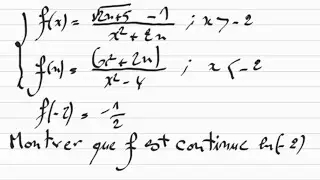 f(x) = (√(2x+5) - 1)/(x² + 2x) ; x > -2
f(x) = (x² + 2x)/(x² - 4) ; x < -2
f(-2) = -1/2
Montrer que f est continue en (-2)